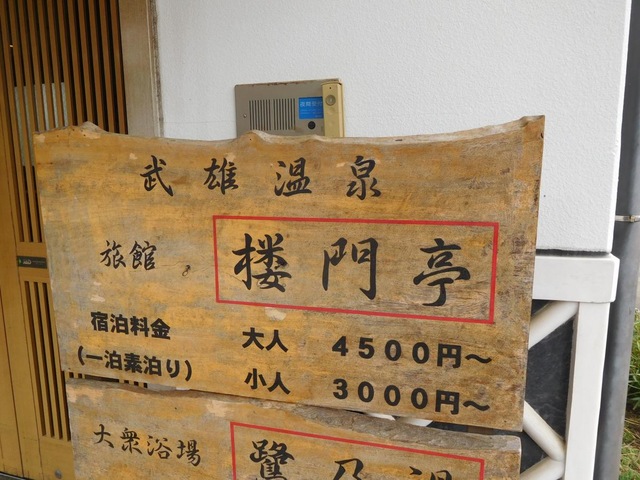 武雄温泉
旅館 楼門亭
宿泊料金 大人 4500円～
(一泊素泊り) 小人 3000円～
大衆浴場 鷺乃湯